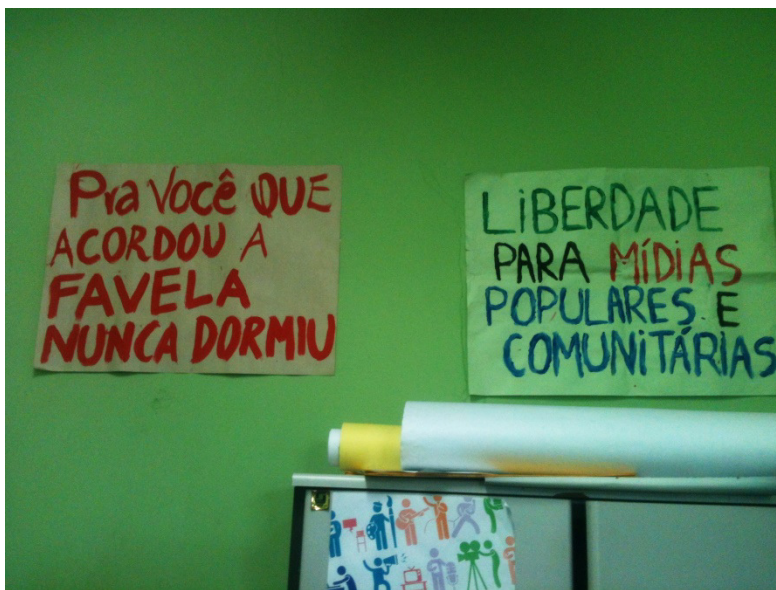 Pra Você QUE
ACORDOU A
FAVELA
NUNCA DORMIU
LiBERDADE
PARA MÍDiAS
POPULARES E
COMUNiTÁRiAS